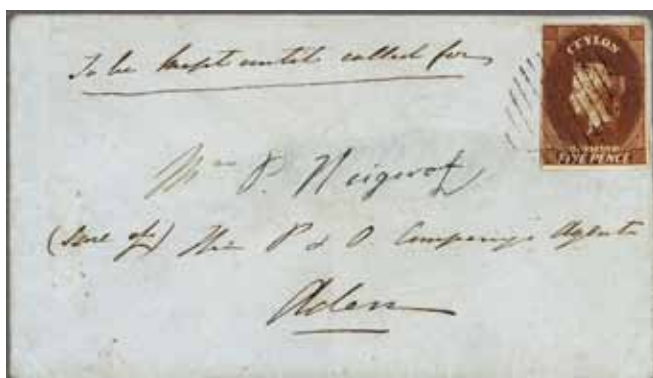 To be kept until called for
CEYLON
POSTAGE
FIVE PENCE
Mrs P.
(Care of) The P & O Company's Agents
Aden